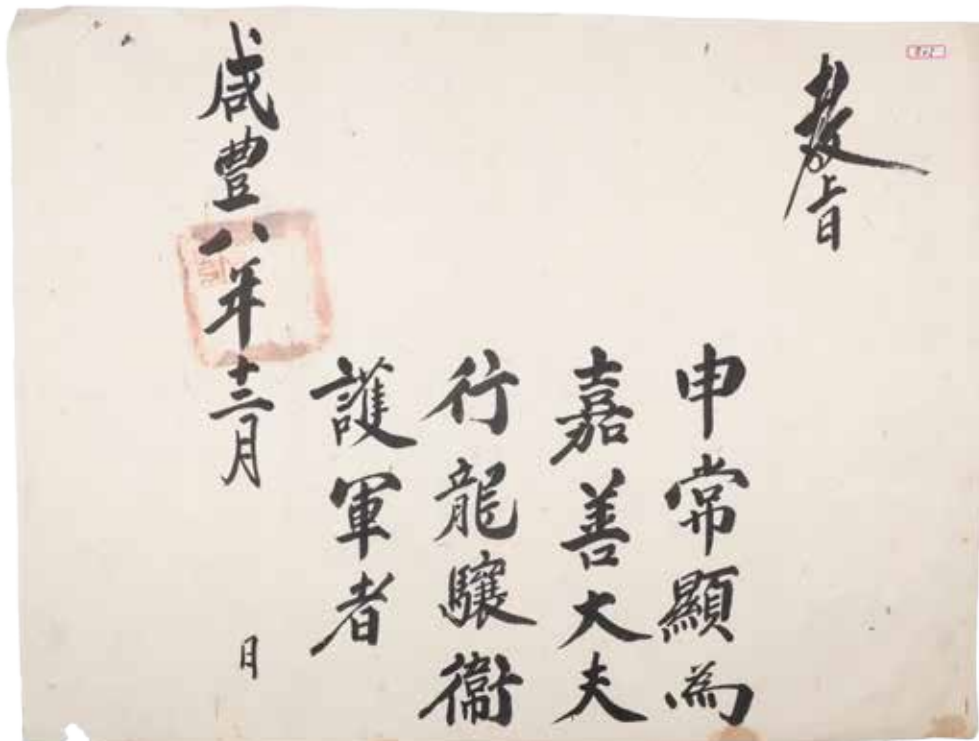 敎旨
申常顯為
嘉善大夫
行龍驤衛
護軍者
咸豊八年十二月 日